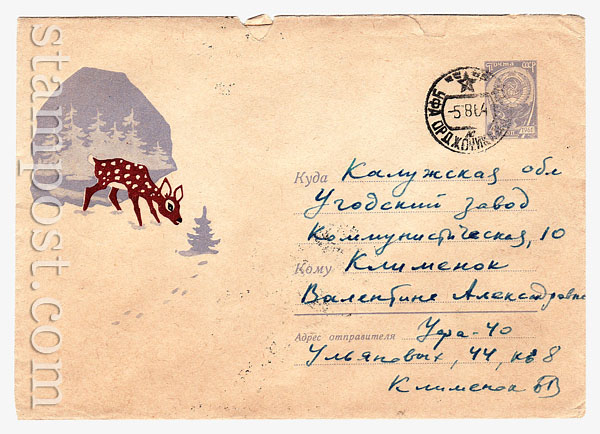 stampost.com
ПОЧТА СССР
УФА ОРДЖОНИК
-5.8.64
Куда Калужская обл
Угодский завод
Коммунистическая, 10
Кому Клименок
Валентине Александровне
Адрес отправителя Уфа-40
Ульяновых, 44, кв 8
Клименок